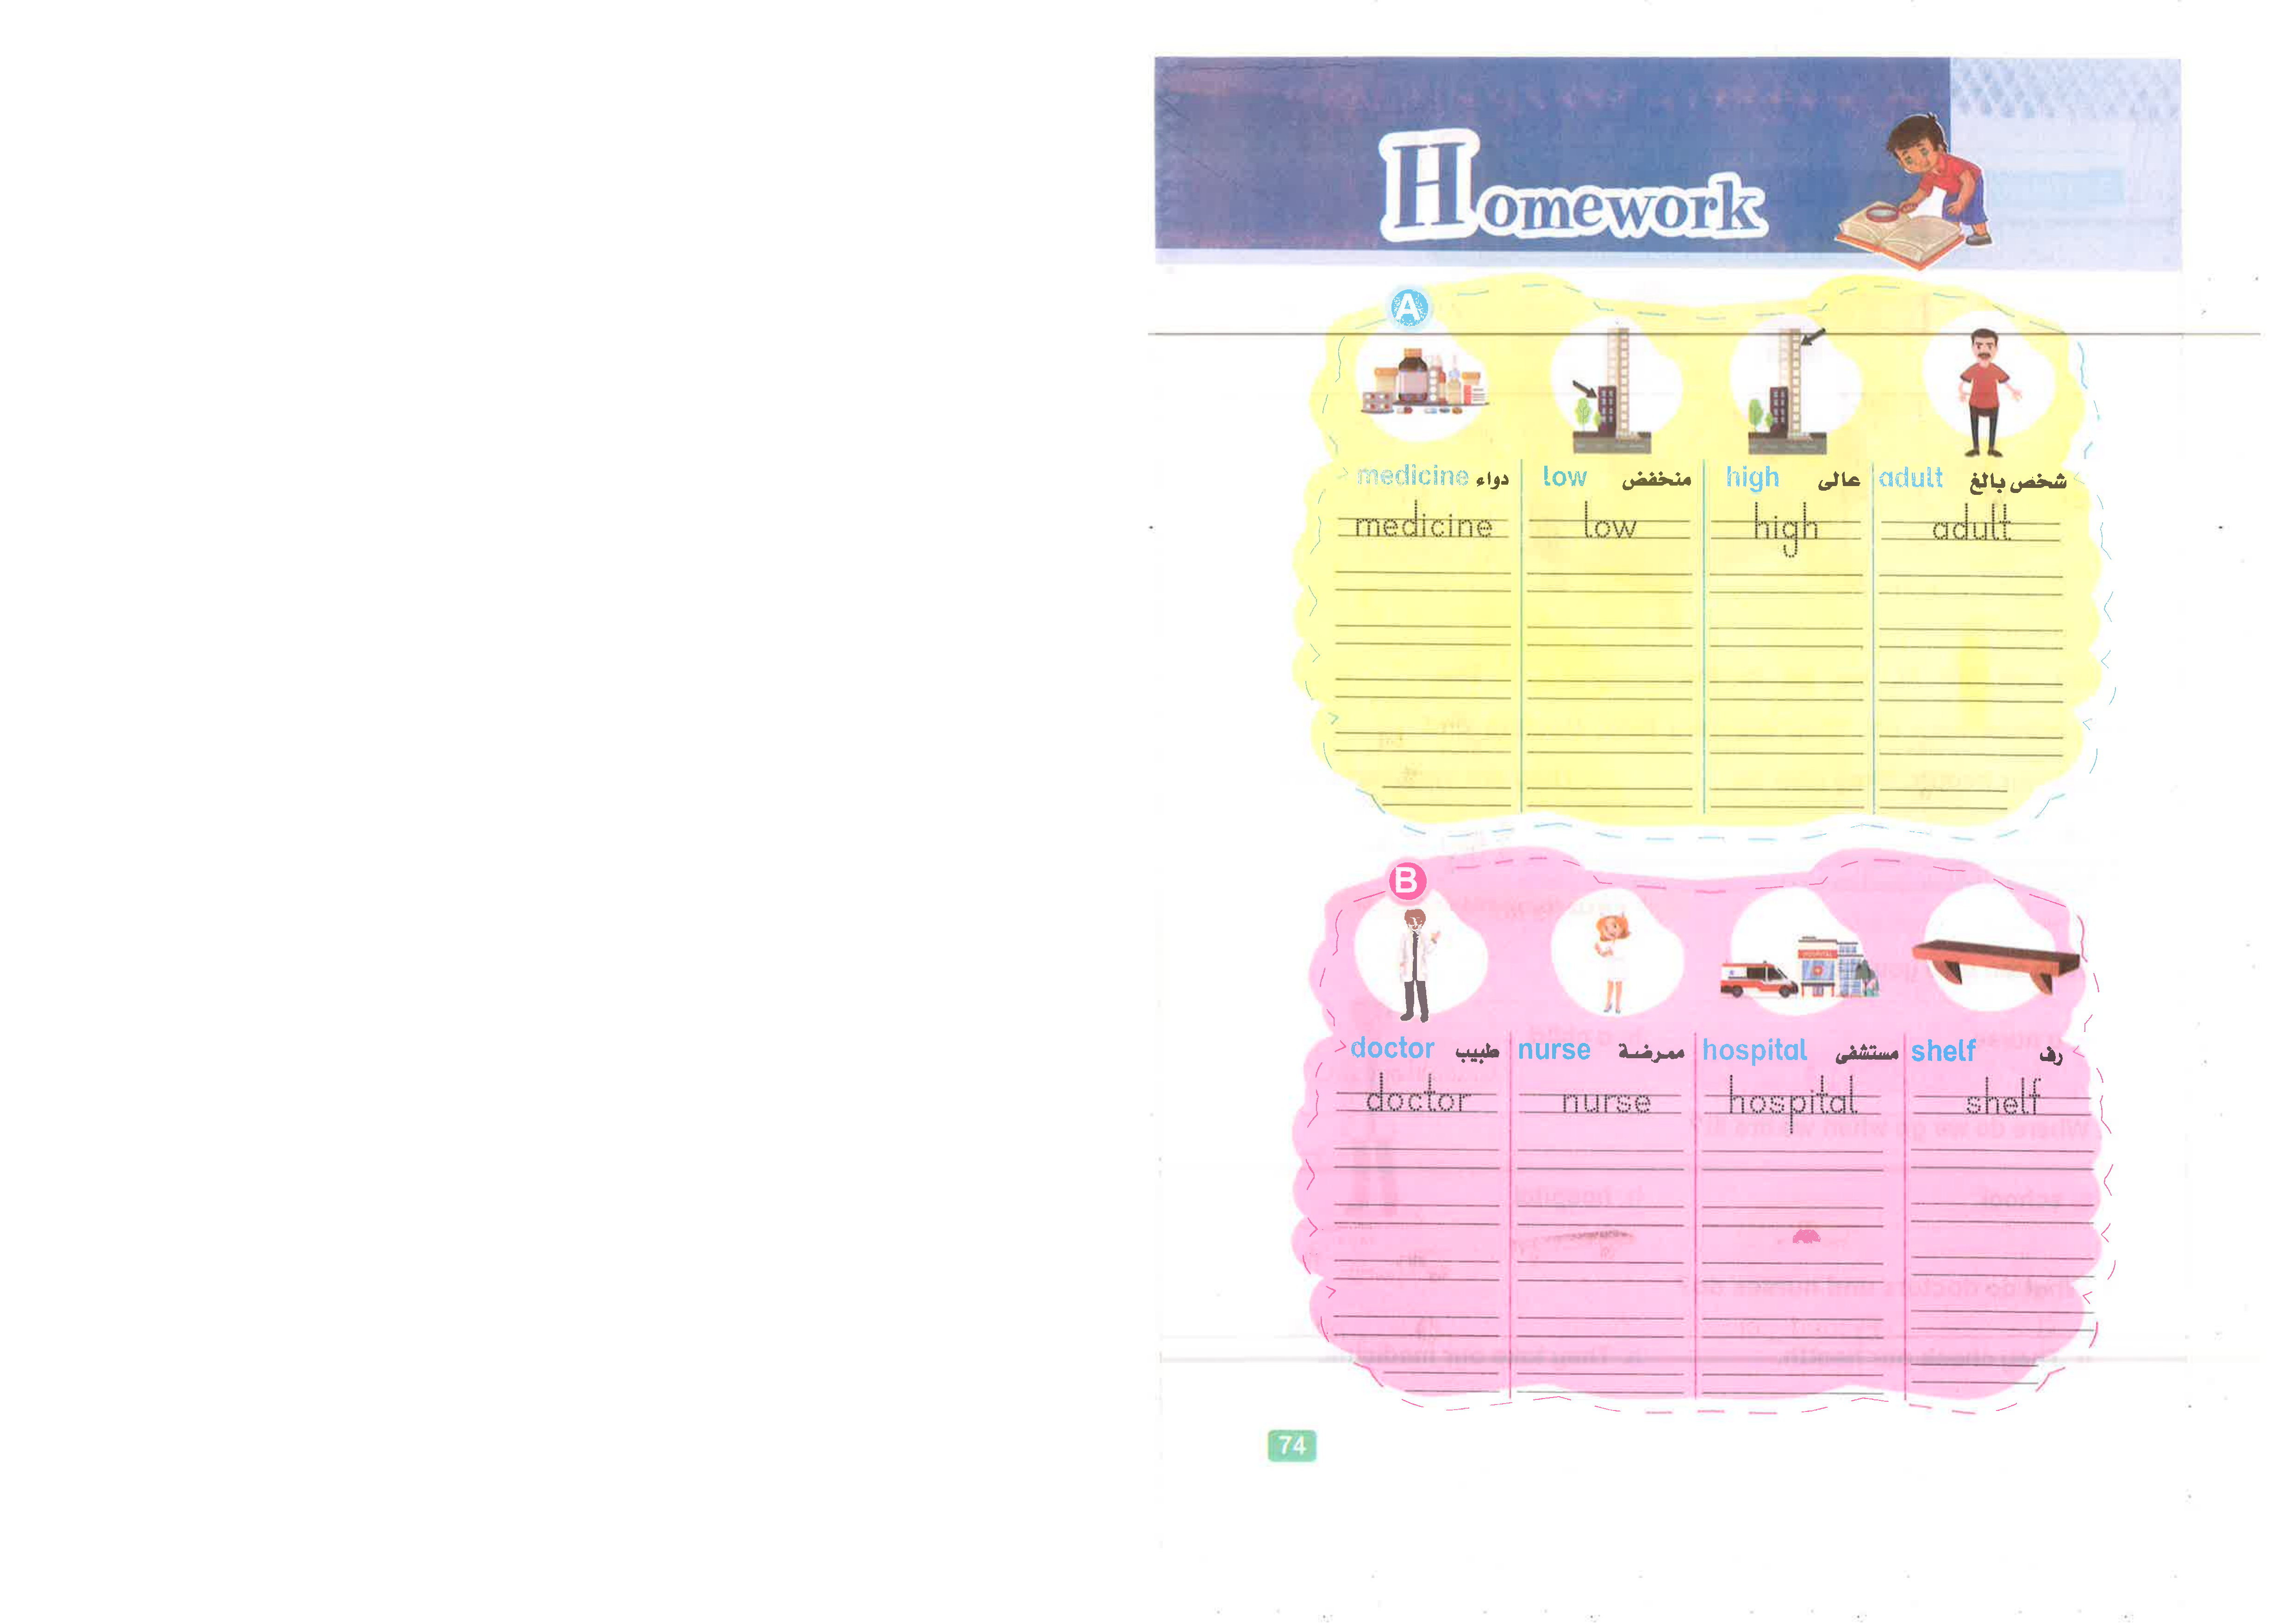 Homework
A
medicine دواء low منخفض high عالى adult شخص بالغ
medicine low high adult
B
doctor طبيب nurse ممرضة hospital مستشفى shelf رف
doctor nurse hospital shelf
74